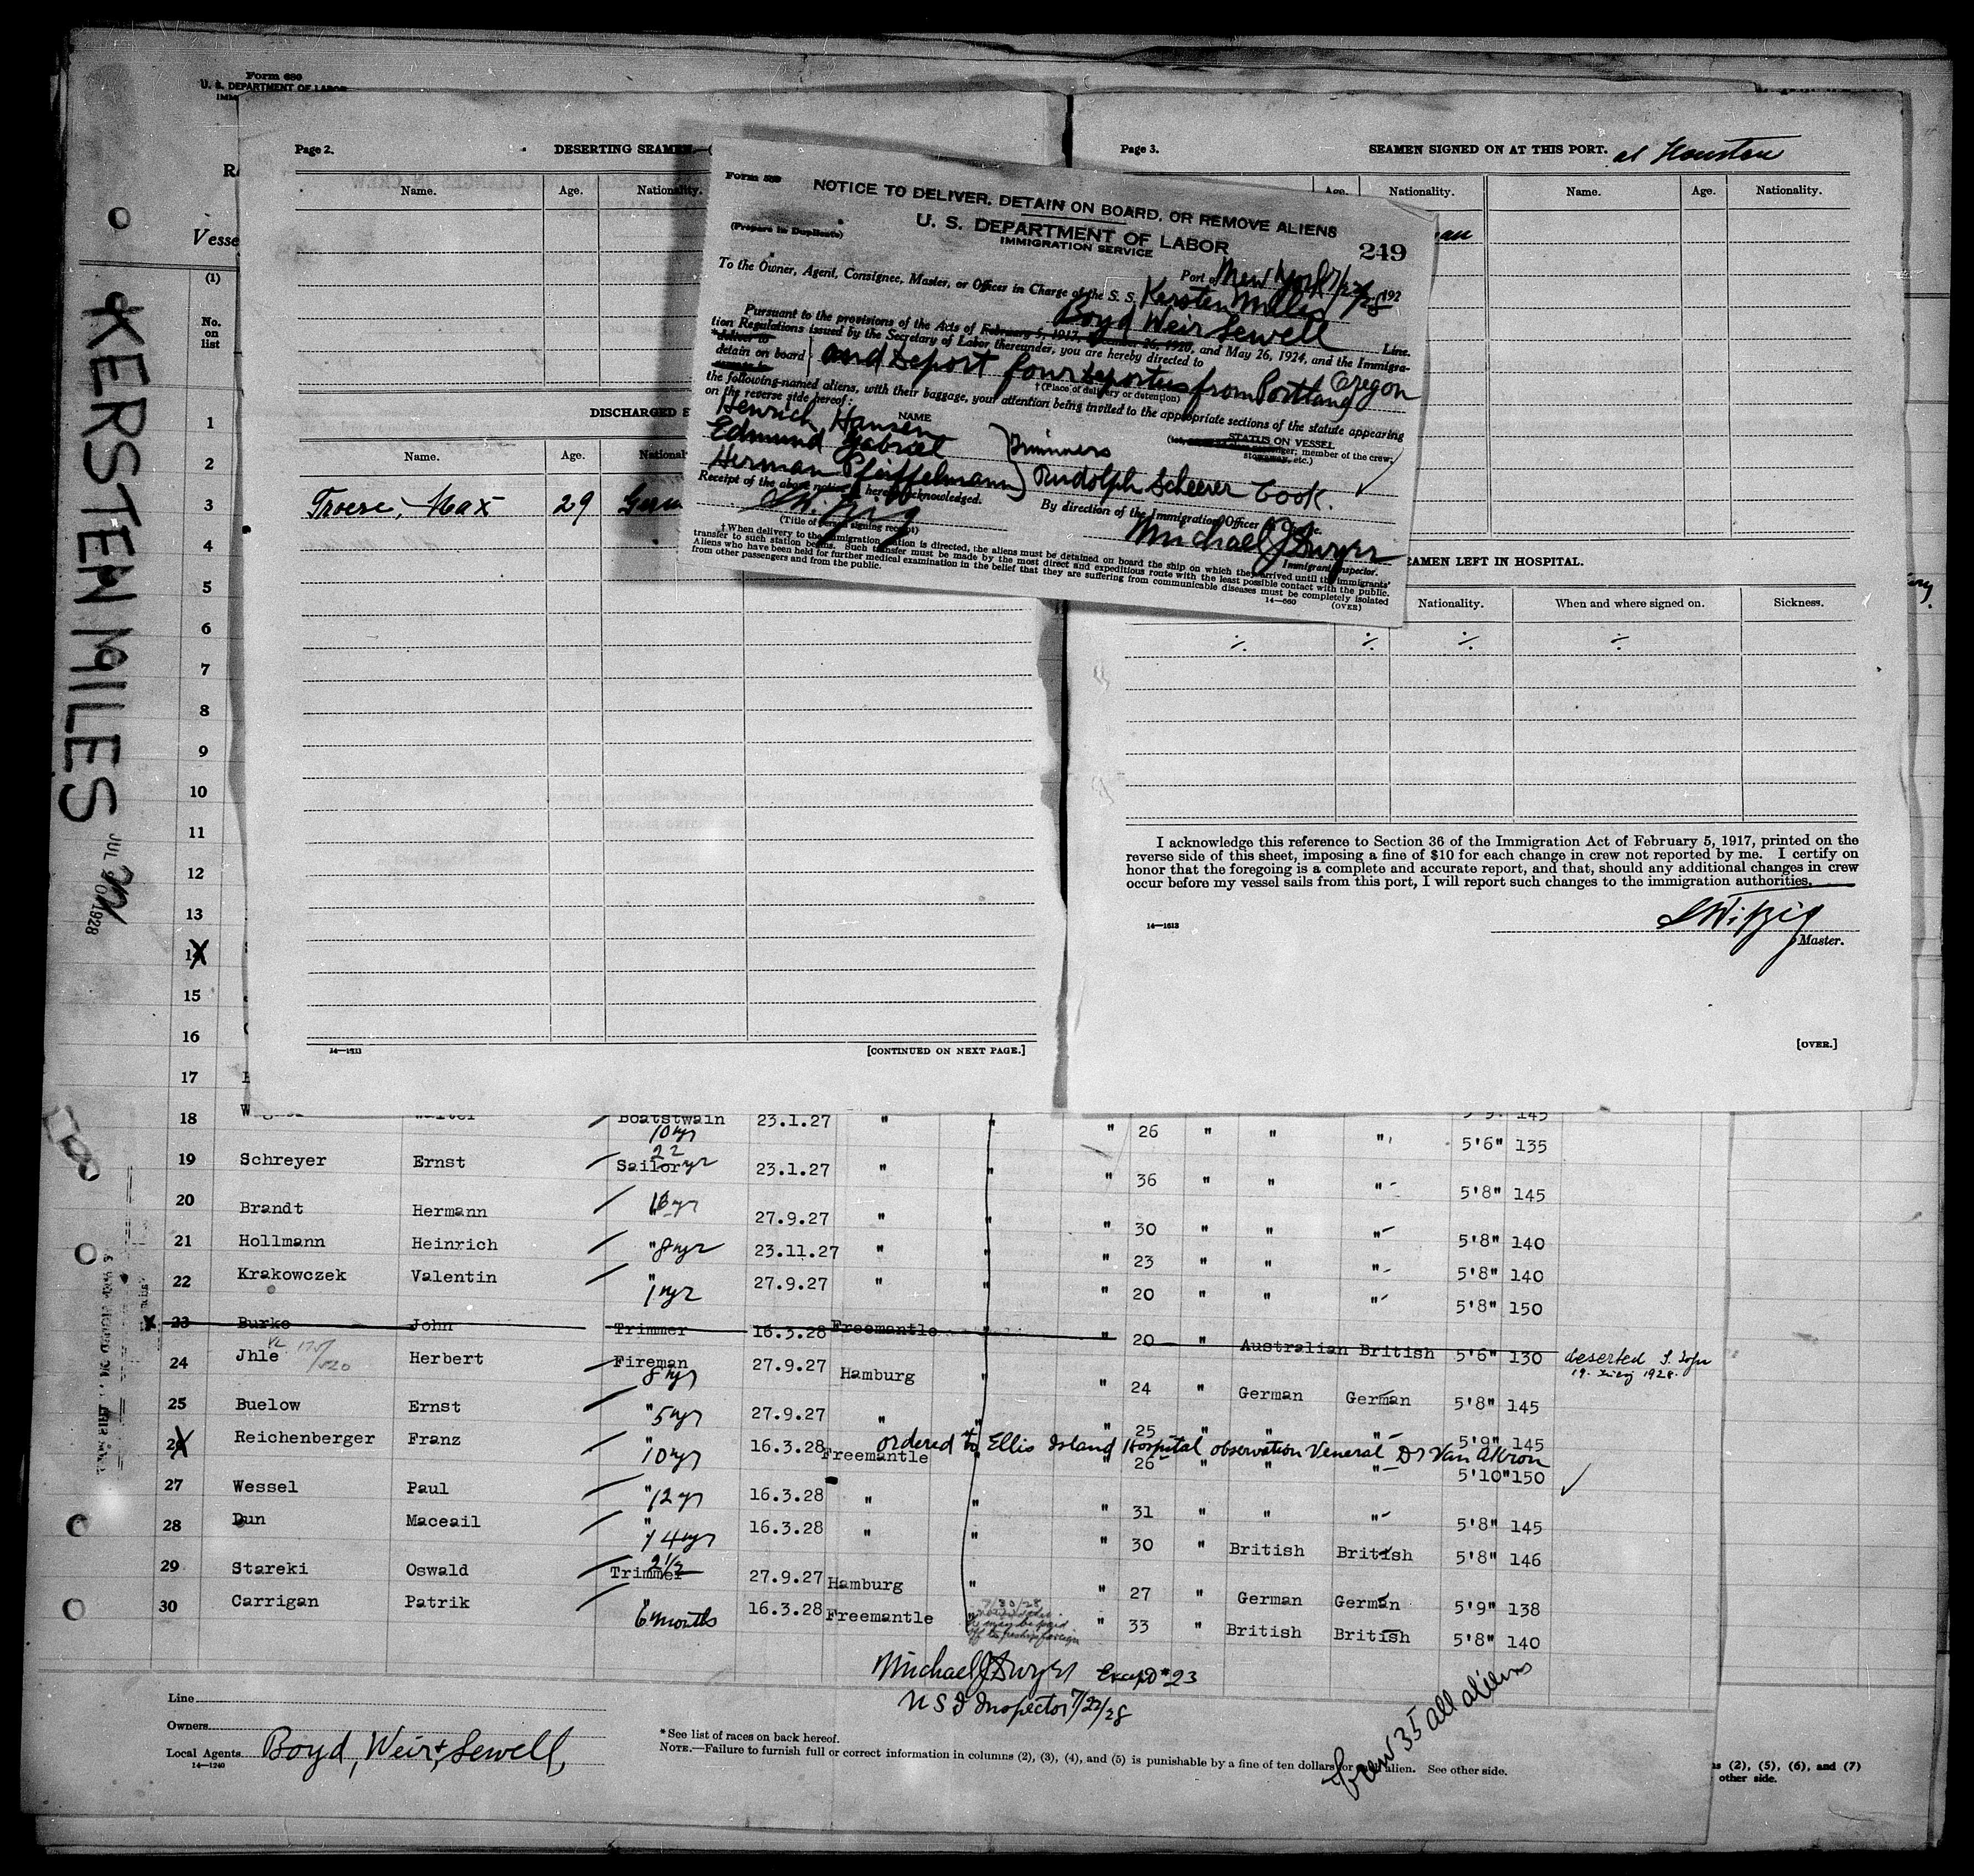 Form 680
U. S. DEPARTMENT OF LABOR
Vesse
(1)
No.
on
list
KERSTEN MILES
JUL 20 1928
Page 2.
DESERTING SEAMEN.
Name. Age. Nationality.
DISCHARGED
Name. Age. National
Troese, Max 29
14—1613
[CONTINUED ON NEXT PAGE.]
Page 3.
SEAMEN SIGNED ON AT THIS PORT. at Houston
Age. Nationality. Name. Age. Nationality.
an
SEAMEN LEFT IN HOSPITAL.
Nationality. When and where signed on. Sickness.
÷ ÷ ÷ ÷
I acknowledge this reference to Section 36 of the Immigration Act of February 5, 1917, printed on the
reverse side of this sheet, imposing a fine of $10 for each change in crew not reported by me. I certify on
honor that the foregoing is a complete and accurate report, and that, should any additional changes in crew
occur before my vessel sails from this port, I will report such changes to the immigration authorities.
14—1613
Master.
[OVER.]
Form 889
NOTICE TO DELIVER, DETAIN ON BOARD, OR REMOVE ALIENS
U. S. DEPARTMENT OF LABOR
IMMIGRATION SERVICE
249
(Prepare in Duplicate)
Port of New York 7/22/28 192
To the Owner, Agent, Consignee, Master, or Officer in Charge of the S. S. Kersten Miles
Boyd Weir Sewell Line.
Pursuant to the provisions of the Acts of February 5, 1917, December 26, 1920, and May 26, 1924, and the Immigra-
tion Regulations issued by the Secretary of Labor thereunder, you are hereby directed to
deliver to
detain on board and deport four deportees from Portland Oregon
remove to
†(Place of delivery or detention)
the following-named aliens, with their baggage, your attention being invited to the appropriate sections of the statute appearing
on the reverse side hereof:
NAME
STATUS ON VESSEL
passenger; member of the crew;
stowaway, etc.)
Henrich Hansen
Edmund Gabriel Trimmers
Herman Pfeiffelmann Rudolph Scheerer Cook.
Receipt of the above notice is hereby acknowledged.
By direction of the Immigration Officer in Charge.
(Title of person signing receipt)
Michael J Dwyer
Immigrant Inspector.
†When delivery to the immigration station is directed, the aliens must be detained on board the ship on which they arrived until the immigrants'
transfer to such station begins. Such transfer must be made by the most direct and expeditious route with the least possible contact with the public.
Aliens who have been held for further medical examination in the belief that they are suffering from communicable diseases must be completely isolated
from other passengers and from the public.
14—660 (OVER)
1
2
3
4
5
6
7
8
9
10
11
12
13
14
15
16
17
18 Boatstwain 10 yr 23.1.27 " " " 26 " " " 5'6" 135
19 Schreyer Ernst Sailor 22 yr 23.1.27 " " " 36 " " " 5'8" 145
20 Brandt Hermann " 27.9.27 " " " 30 " " " 5'8" 140
21 Hollmann Heinrich " 8 yr 23.11.27 " " " 23 " " " 5'8" 140
22 Krakowczek Valentin " 1 yr 27.9.27 " " " 20 " " " 5'8" 150
X 23 Burke John Trimmer 16.3.28 Freemantle " " 20 " Australian British 5'6" 130 deserted
24 Jhle Herbert Fireman 8 yr 27.9.27 Hamburg " " 24 " German German 5'8" 145
25 Buelow Ernst " 5 yr 27.9.27 " " " 25 " " " 5'9" 145
26 Reichenberger Franz " 10 yr 16.3.28 Freemantle " 26 " " " 5'10" 150
ordered to Ellis Island Hospital observation Veneral Dr Van Akron
27 Wessel Paul " 12 yr 16.3.28 " " " 31 " " " 5'8" 145
28 Dun Maceail " 4 yr 16.3.28 " " " 30 " British British 5'8" 146
29 Stareki Oswald Trimmer 2 1/2 27.9.27 Hamburg " " 27 " German German 5'9" 138
30 Carrigan Patrik " 6 months 16.3.28 Freemantle " " 33 " British British 5'8" 140
Michael J Dwyer Except #23
U S I Inspector 7/22/28
Crew 35 all aliens
Line
Owners
Local Agents Boyd, Weir + Sewell,
14—1240
*See list of races on back hereof.
NOTE.—Failure to furnish full or correct information in columns (2), (3), (4), and (5) is punishable by a fine of ten dollars for each alien. See other side.
(2), (5), (6), and (7)
other side.